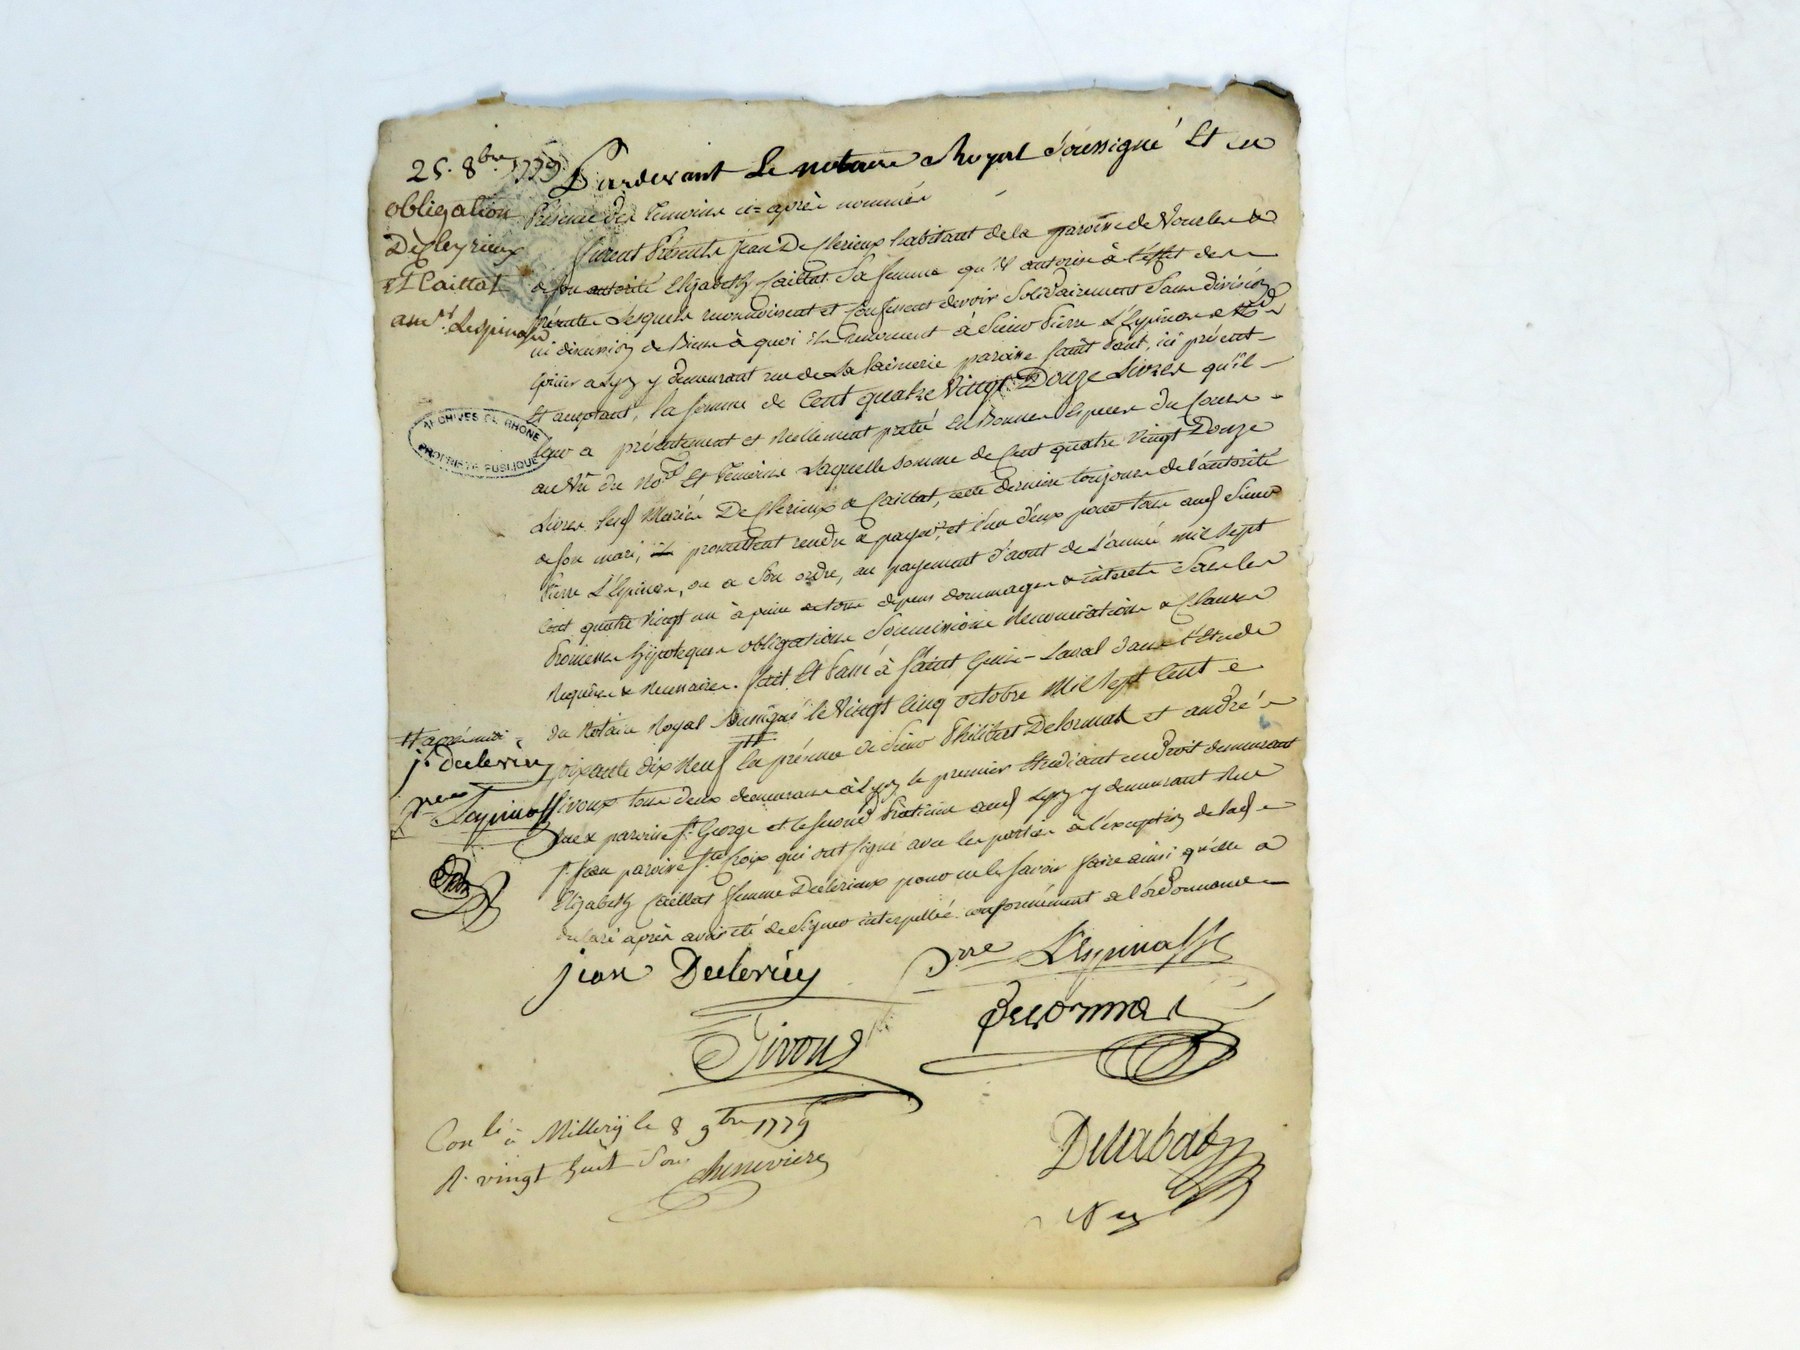 25. 8bre 1779
obligation
Declerieux
et Caillat
au sr. Lespinasse
Pardevant Le notaire Royal soussigné Et en
présence des temoins ci-après nommés
furent présents Jean De Clerieux habitant de la paroisse de Vourles &
de son autorité Elizabeth Caillat sa femme qu'il autorise à l'effet des
présentes Lesquels reconnoissent et confessent devoir solidairement sans division
ni discussion de Biens à quoi ils renoncent à Sieur Pierre L'Espinasse
à Lyon y demeurant rue de La paroisse Saint Paul, ici présent
Et acceptant, la somme de Cent quatre Vingt Douze Livres qu'il
leur a présentement et réellement preté En Bonnes Especes du Cours
au vû du No.re Et temoins Laquelle somme de Cent quatre vingt Douze
Livres les d. Mariés De Clerieux & Caillat, cette derniere toujours de l'autorité
de son mari, promettent rendre & payer, et l'un d'eux pour tous aud. Sieur
Pierre L'Espinasse, ou a son ordre, au payement d'aout de l'année mil sept
Cent quatre vingt un à peine de tous depens dommages & interets Sous les
Promesses hypoteques obligations Soumissions Renonciations & Clauses
Requises & Necessaires. fait Et Passé à Saint Genis-Laval dans l'Etude
du Notaire Royal soussigné le Vingt Cinq octobre Mil Sept Cent
soixante dix Neuf la présence de Sieur Philibert Delorme et andré
Pivoux tous deux demeurans à Lyon le premier Etudiant en droit demeurant
paroisse St. George et le second Praticien aud. Lyon y demeurant Rue
St. Jean paroisse Ste. Croix qui ont signé avec les parties à l'exception de lad.
Elizabeth Caillat femme Declerieux pour ne le Savoir faire ainsi qu'elle a
declaré après avoir été de signer interpellée conformément a l'ordonnance
# après midi
j. decleriey
pre Lespinasse
jean Decleriey
pre L'Espinasse
Pivoux
Delorme
Conlé à Millery le 8 9bre 1779
R. vingt huit Sous
Chenevière
ARCHIVES DU RHONE
PROPRIÉTÉ PUBLIQUE